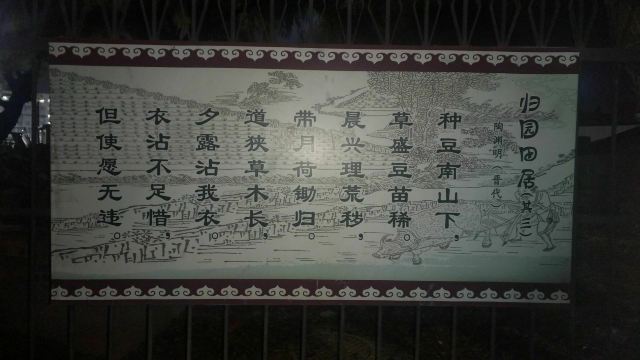 归园田居（其三）
陶渊明（晋代）
种豆南山下，
草盛豆苗稀。
晨兴理荒秽，
带月荷锄归。
道狭草木长，
夕露沾我衣。
衣沾不足惜，
但使愿无违。